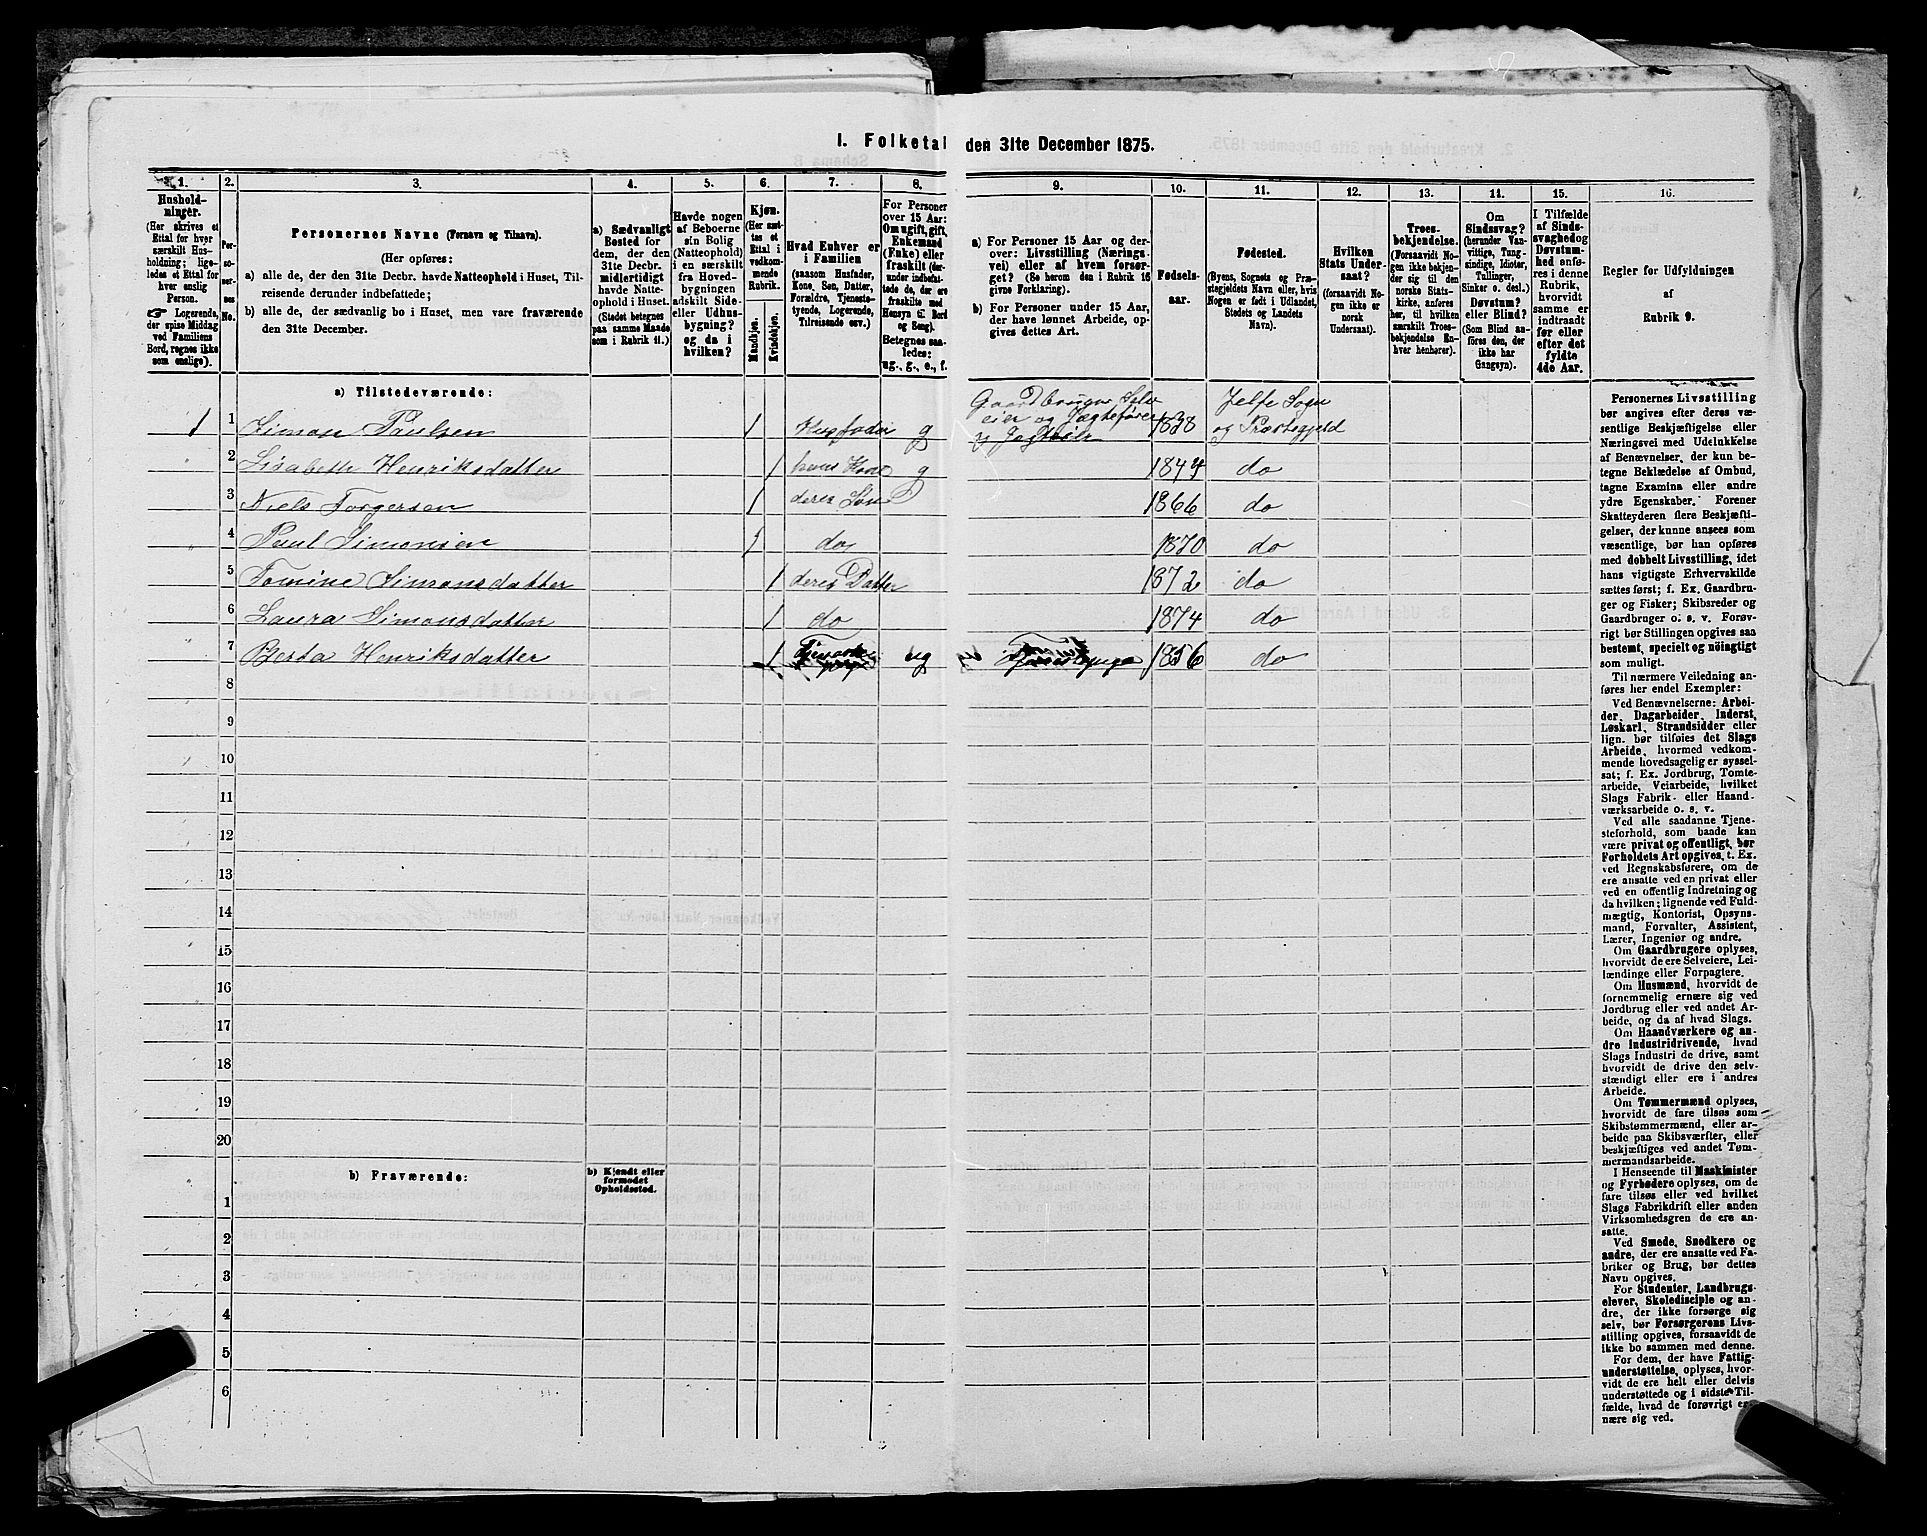 I. Folketal den 31te December 1875.
1. 2. 3. 4. 5. 6. 7. 8. 9. 10. 11. 12. 13. 14. 15. 16.
Hushold-
ninger.
(Her skrives et
Ettal for hver
særskilt Hus-
holdning; lige-
ledes et Ettal for
hver enslig
Person.
☞ Logerende,
der spise Middag
ved Familiens
Bord, regnes ikke
som enslige).
Per-
so-
ner-
nes
No.
Personernes Navne (Fornavn og Tilnavn).
(Her opføres:
a) alle de, der den 31te Decbr. havde Natteophold i Huset, Til-
reisende derunder indbefattede;
b) alle de, der sædvanlig bo i Huset, men vare fraværende
den 31te December.
a) Sædvanligt
Bosted for
dem, der den
31te Decbr.
midlertidigt
havde Natte-
ophold i Huset.
(Stedet betegnes
paa samme Maade
som i Rubrik 11.)
Havde nogen
af Beboerne
sin Bolig
(Natteophold)
i en særskilt
fra Hoved-
bygningen
adskilt Side-
eller Udhus-
bygning?
og da i
hvilken?
Kjøn.
(Her sæt-
tes et
Ettal i
vedkom-
mende
Rubrik.
Mandkjøn.
Kvindekjøn.
Hvad Enhver er
i Familien
(saasom Husfader,
Kone, Søn, Datter,
Forældre, Tjeneste-
tyende, Logerende,
Tilreisende osv.)
For Personer
over 15 Aar:
Om ugift, gift,
Enkemand
(Enke) eller
fraskilt (der-
under indbefat-
tede de, der ere
fraskilte med
Hensyn til Bord
og Seng).
Betegnes saa-
ledes:
ug., g., e., f.
a) For Personer 15 Aar og der-
over: Livsstilling (Nærings-
vei) eller af hvem forsør-
get? (Se herom den i Rubrik 16
givne Forklaring).
b) For Personer under 15 Aar,
der have lønnet Arbeide, op-
gives dettes Art.
Fødsels-
aar.
Fødested.
(Byens, Sognets og Præ-
stegjeldets Navn eller, hvis
Nogen er født i Udlandet,
Stedets og Landets
Navn).
Hvilken
Stats Under-
saat?
(forsaavidt No-
gen ikke er
norsk
Undersaat).
Troes-
bekjendelse.
(Forsaavidt No-
gen ikke bekjen-
der sig til den
norske Stats-
kirke, anføres
her, til hvilken
særskilt Troes-
bekjendelse En-
hver henhører).
Om
Sindssvag?
(herunder Van-
vittige, Tung-
sindige, Idioter,
Tullinger,
Sinker o. desl.)
Døvstum?
eller Blind?
(Som Blind an-
føres den, der
ikke har
Gangsyn).
I Tilfælde
af Sinds-
svaghed og
Døvstum-
hed anfø-
res i denne
Rubrik,
hvorvidt
samme er
indtraadt
før eller
efter det
fyldte
4de Aar.
Regler for Udfyldningen
af
Rubrik 9.
a) Tilstedeværende:
1 1 Simon Paulsen 1 Husfader g Gaardbruger Selv-
eier og Jægtefører 1838 Jelse Sogn
og Præstegjeld
2 Lisabeth Henriksdatter 1 hans Kone g 1844 do
3 Niels Torgersen 1 deres Søn 1866 do
4 Paul Simonsen 1 do 1870 do
5 Tomine Simonsdatter 1 deres Datter 1872 do
6 Laura Simonsdatter 1 do 1874 do
7 Berta Henriksdatter 1 ug 1856 do
8
9
10
11
12
13
14
15
16
17
18
19
20
b) Fraværende:
b) Kjendt eller
formodet
Opholdssted.
1
2
3
4
5
6
Personernes Livsstilling
bør angives efter deres væ-
sentlige Beskjæftigelse eller
Næringsvei med Udelukkelse
af Benævnelser, der kun be-
tegne Beklædelse af Ombud,
tagne Examina eller andre
ydre Egenskaber. Forener
Skatteyderen flere Beskjæfti-
gelser, der kunne ansees som
væsentlige, bør han opføres
med dobbelt Livsstilling, idet
hans vigtigste Erhvervskilde
sættes først; f. Ex. Gaardbru-
ger og Fisker; Skibsreder og
Gaardbruger o. s. v. Forøv-
rigt bør Stillingen opgives saa
bestemt, specielt og nøiagtigt
som muligt.
Til nærmere Veiledning an-
føres her endel Exempler:
Ved Benævnelserne: Arbei-
der, Dagarbeider, Inderst,
Løskarl, Strandsidder eller
lign. bør tilføies det Slags
Arbeide, hvormed vedkom-
mende hovedsagelig er syssel-
sat; f. Ex. Jordbrug, Tomte-
arbeide, Veiarbeide, hvilket
Slags Fabrik- eller Haand-
værksarbeide o. s. v.
Ved alle saadanne Tjene-
steforhold, som baade kan
være privat og offentligt, bør
Forholdets Art opgives, t. Ex.
ved Regnskabsførere, om de
ere ansatte ved en privat eller
ved en offentlig Indretning og
da hvilken; lignende ved Fuld-
mægtig, Kontorist, Opsyns-
mand, Forvalter, Assistent,
Lærer, Ingeniør og andre.
Om Gaardbrugere oplyses,
hvorvidt de ere Selveiere, Lei-
lændinge eller Forpagtere.
Om Husmænd, hvorvidt de
fornemmelig ernære sig ved
Jordbrug eller ved andet Ar-
beide, og da af hvad Slags.
Om Haandværkere og an-
dre Industridrivende, hvad
Slags Industri de drive, samt
hvorvidt de drive den selv-
stændigt eller ere i andres
Arbeide.
Om Tømmermænd oplyses,
hvorvidt de fare tilsøs som
Skibstømmermænd, eller ar-
beide paa Skibsværfter, eller
beskjæftiges ved andet Tøm-
mermandsarbeide.
I Henseende til Maskinister
og Fyrbødere oplyses, om de
fare tilsøs eller ved hvilket
Slags Fabrikdrift eller anden
Virksomhedsgren de ere an-
satte.
Ved Smede, Snedkere og
andre, der ere ansatte ved Fa-
briker og Brug, bør dettes
Navn opgives.
For Studenter, Landbrugs-
elever, Skoledisciple og an-
dre, der ikke forsørge sig
selv, bør Forsørgerens Livs-
stilling opgives, forsaavidt de
ikke bo sammen med denne.
For dem, der have Fattig-
understøttelse, oplyses, hvor-
vidt de ere helt eller delvis
understøttede og i sidste Til-
fælde, hvad de forøvrigt er-
nære sig ved.